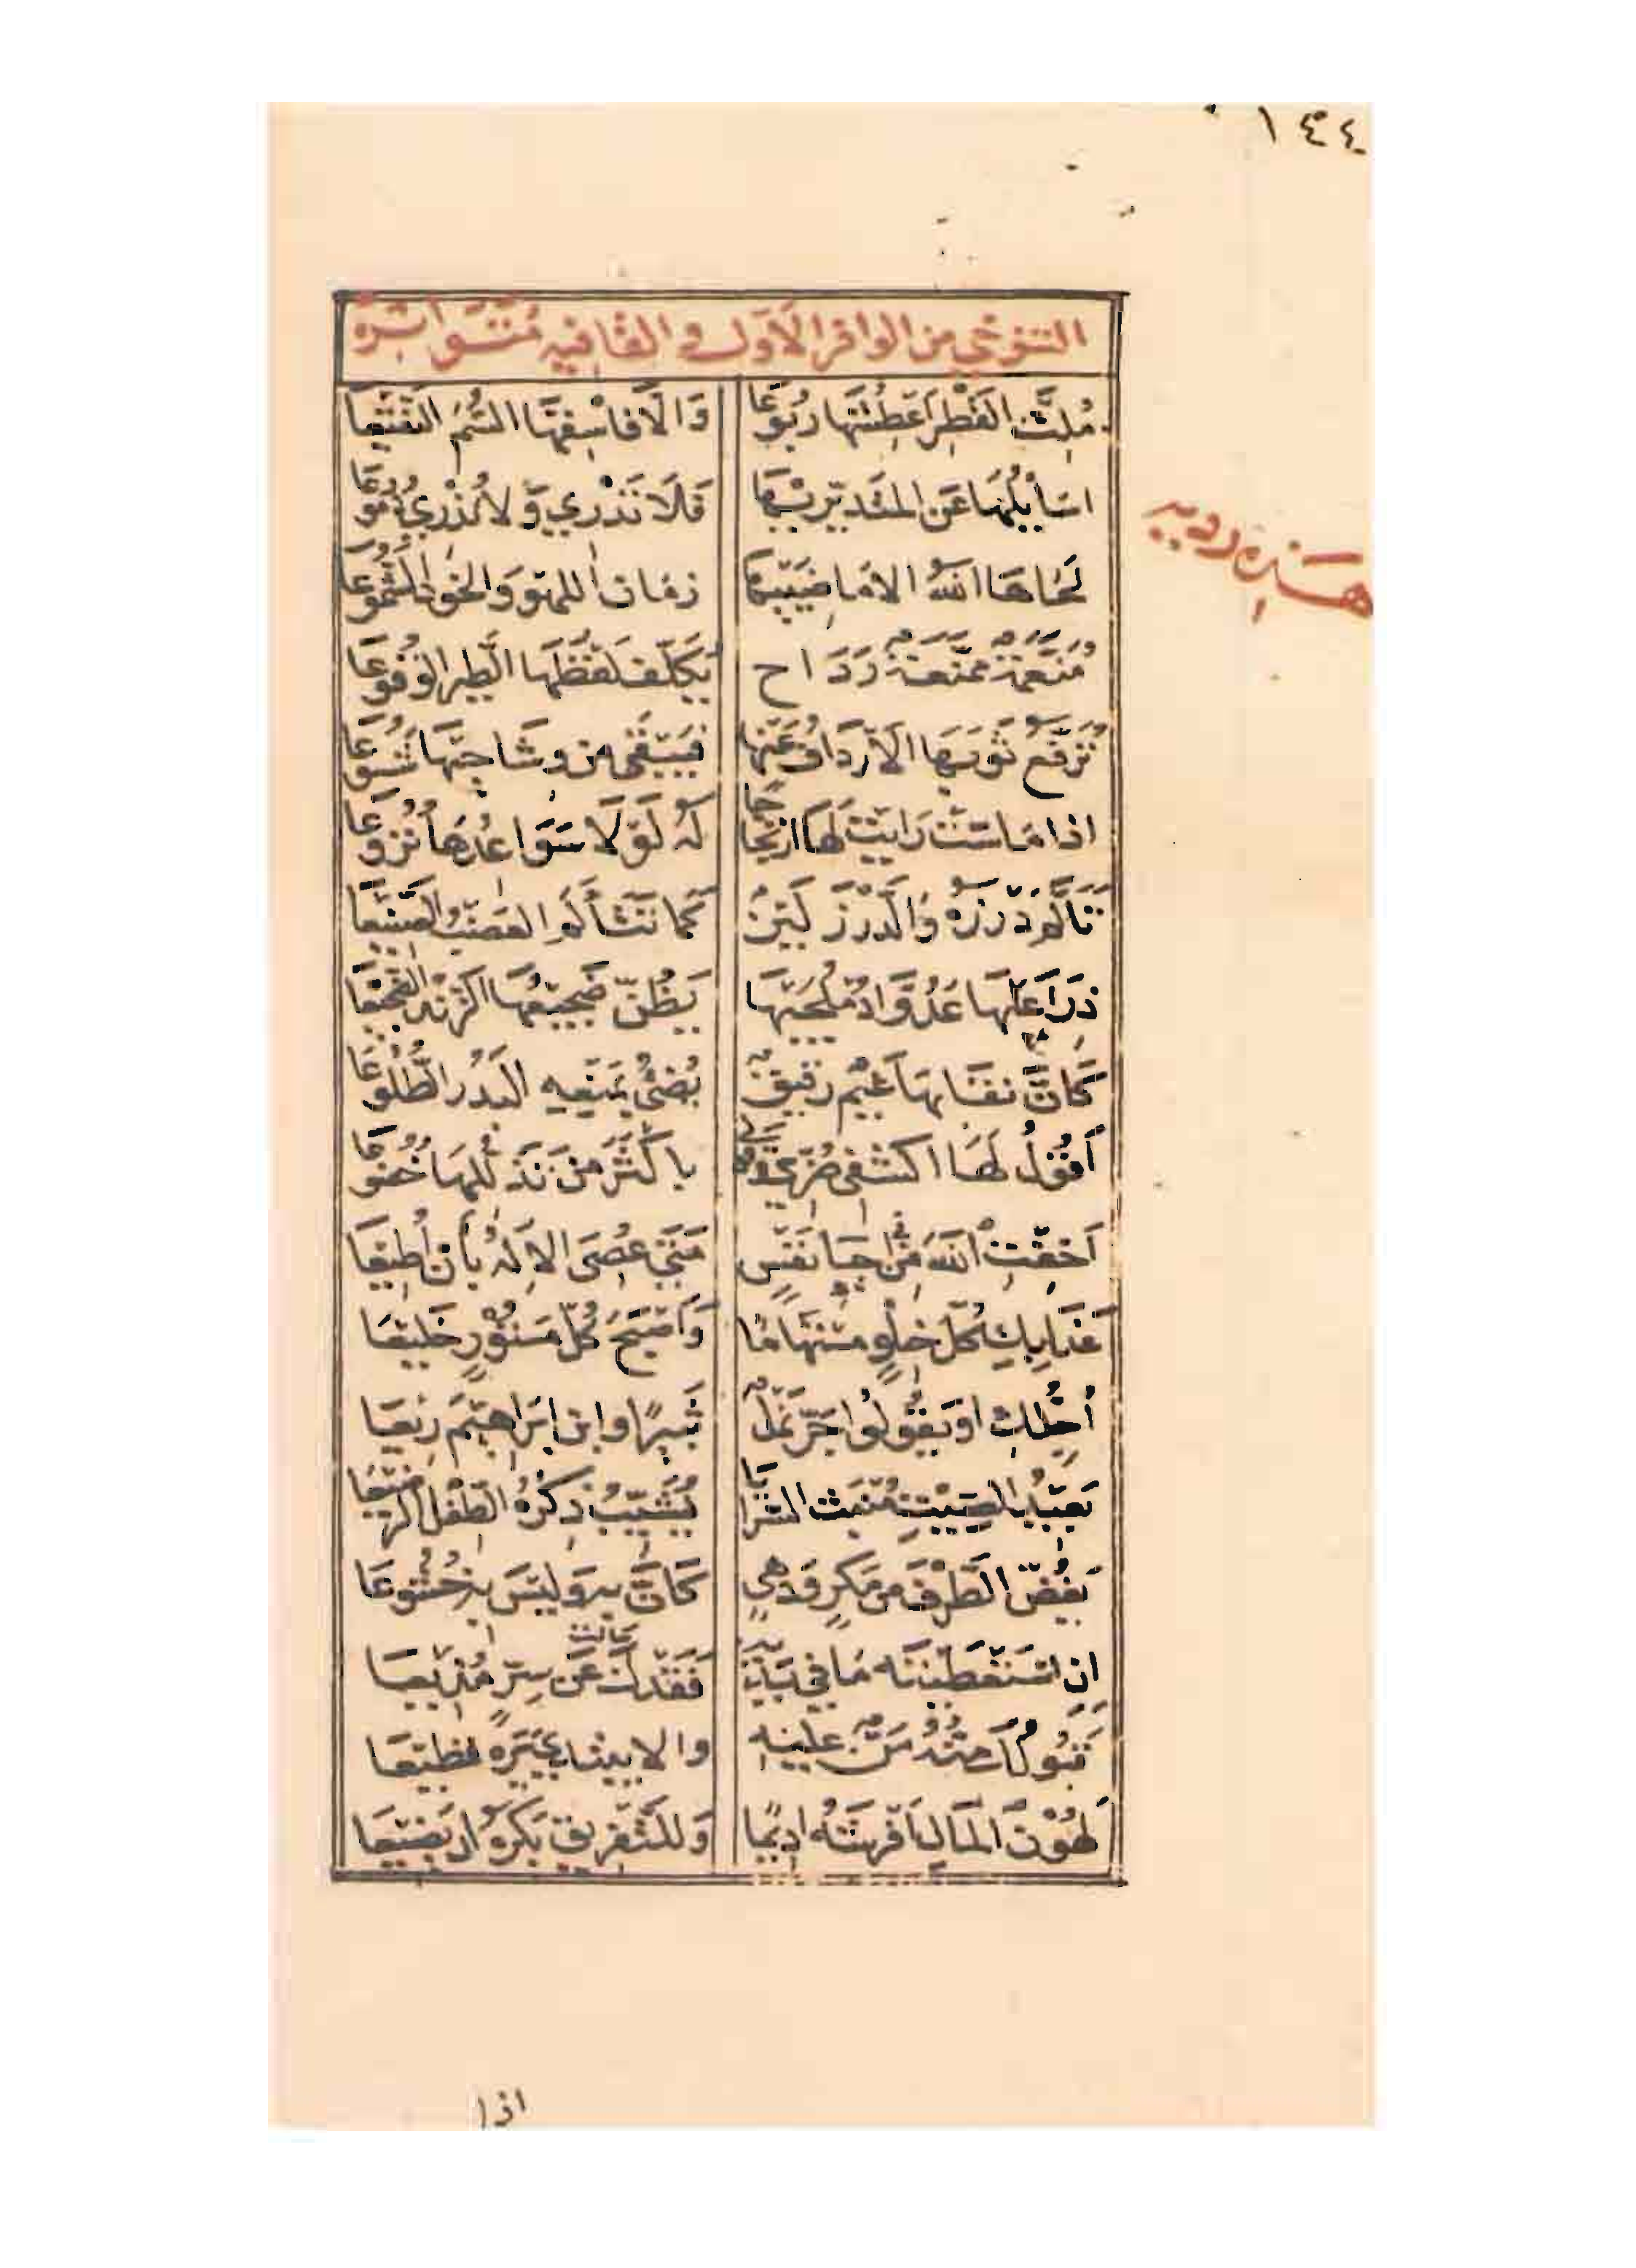 ١٤٤
التنوخي من الوافر الأول والقافيه متواترة
مُلِثَّ القَطْرِ أَعْطِشْهَا رُبُوعَا وَالَّا فاسْقِهَا السُّمَّ النَّقِيعَا
اسَايِلُهَا عَنِ المتَدَيِّرِيهَا فَلَا تَدْرِي وَلا تُذْرِي دُمُوعَا
هذه رويه
لَحَاهَا اللهُ الا مَاضِيَيْهَا زمانَ اللهو وَالخَوْدَ الشَّمُوعَا
مُنَعَّمَةٌ مُمَنَّعَةٌ رَدَاح يُكَلِّفُ لَفْظُهَا الطَّيرَ الوُقُوعَا
تُرَفِّعُ ثَوْبَهَا الأَرْدَافُ عَنْهَا فَيَبْقَى مِن وِشَاحَيْهَا شَسُوعَا
اذا مَاسَتْ رَأيْتَ لَهَا ارْتِجَاجًا لَهُ لَوْلَا سَوَاعِدُهَا نُزُوعَا
تَأَلَّمُ دَرْزَهُ وَالدَّرْزُ لَيْنٌ كَمَا تَتَأَلَّمُ العَضْبَ الصَّنِيعَا
ذِرَاعَاهَا عَدُوَّا دُمْلُجَيْهَا يَظُنُّ ضَجِيعُهَا الزَّنْدَ الضَّجِيعَا
كَأَنَّ نقَابَهَا غَيْمٌ رَقِيقٌ يُضِىُٔ بِمَنْعِهِ البَدْرَ الطُّلُوعَا
أَقُولُ لَهَا اكْشِفِي ضُرِّي وَقَوْلِي بِأَكْثَرَ مِنْ تَدَلُّلِهَا خُضُوعَا
أَخِفْتِ اللهَ في إحيَا نَفْسٍ مَتَى عُصِيَ الإِلهُ بِأَن أُطِيعَا
غَدَا بِكِ كُلُّ خِلْوٍ مُسْتَهَامًا وَأَصْبَحَ كُلُّ مَسْتُورٍ خَلِيعَا
أُحِبُّكِ اوْ يَقُولُوا جَرَّ نَمْلٌ ثَبِيرًا وابن إبْرَاهِيمَ رِيْعَا
بَعِيدُ الصِّيْتِ مُنْبَثُّ السَّرَايَا يُشَيِّبُ ذِكْرُهُ الطِّفْلَ الرَّضِيعَا
يَغُضُّ الطَّرْفَ مِن مَكْرٍ وَدَهْيٍ كَأَنَّ بِهِ وَلَيْسَ بِهِ خُشُوعَا
إِنِ اسْتَعْطَيْتَهُ مَا فِي يَدَيْهِ فَقَدْكَ سَأَلْتَ عَن سِرٍّ مُذِيعَا
قَبُولُكَ مَنَّهُ مَنٌّ عَلَيْهِ والا يَبْتَدِي يَرَهُ فَظِيعَا
لِهُوْنِ المَالِ أَفْرَشَهُ ادِيمًا وَلِلتَّفْرِيقِ يَكْرَهُ ان يَضِيعَا
اذا